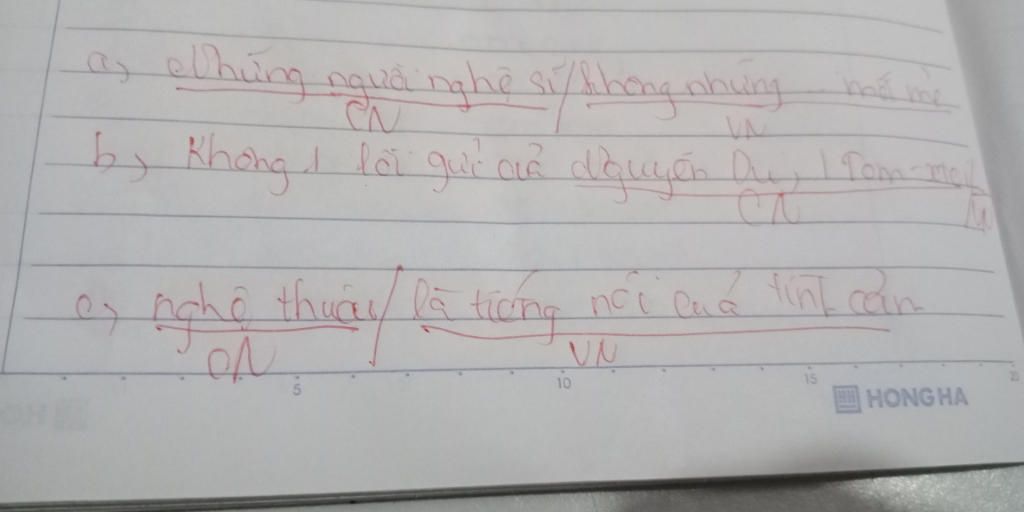 a, Những người nghệ sĩ / không những mới mẻ
CN VN
b, Không, lời gửi của Nguyễn Du, Tôn-
CN VN
c, nghệ thuật / là tiếng nói của tình cảm
CN VN
5 10 15 20
HONG HA